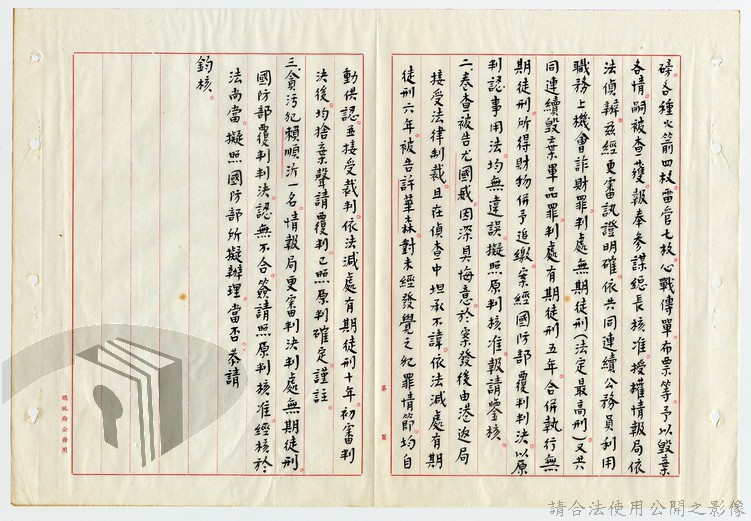 磅各種火箭四枚雷管七枚心戰傳單布票等予以毀棄
各情嗣被查獲報奉參謀總長核准授權情報局依
法偵辦茲經更審訊證明確依共同連續公務員利用
職務上機會詐財罪判處無期徒刑(法定最高刑)又共
同連續毀棄軍品罪判處有期徒刑五年合併執行無
期徒刑所得財物併予追繳案經國防部覆判判決以原
判認事用法均無違誤擬照原判核准報請鑒核
二、卷查被告尤國威因深具悔意於案發後由港返局
接受法律制裁且在偵查中坦承不諱依法減處有期
徒刑六年被告許華森對未經發覺之犯罪情節均自
動供認並接受裁判依法減處有期徒刑十年初審判
決後均捨棄聲請覆判已照原判確定謹註
三、貪污犯賴順沂一名情報局更審判決判處無期徒刑
國防部覆判判決認無不合簽請照原判核准經核於
法尚當擬照國防部所擬辦理當否恭請
鈞核
第 頁
總統府公務用
請合法使用公開之影像